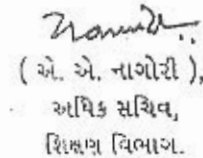 ( એ. એ. નાગોરી ),
અધિક સચિવ,
શિક્ષણ વિભાગ.